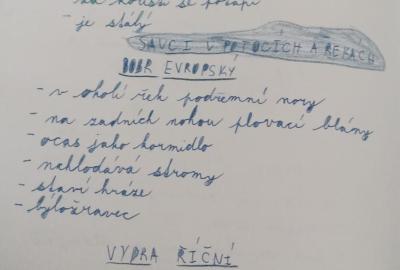 se potápí
- je stálý
SAVCI V POTOCÍCH A ŘEKACH
BOBR EVROPSKÝ
- v okolí řek podzemní nory
- na zadních nohou plovací blány
- ocas jako kormidlo
- nahlodává stromy
- staví hráze
- býložravec
VYDRA ŘÍČNÍ